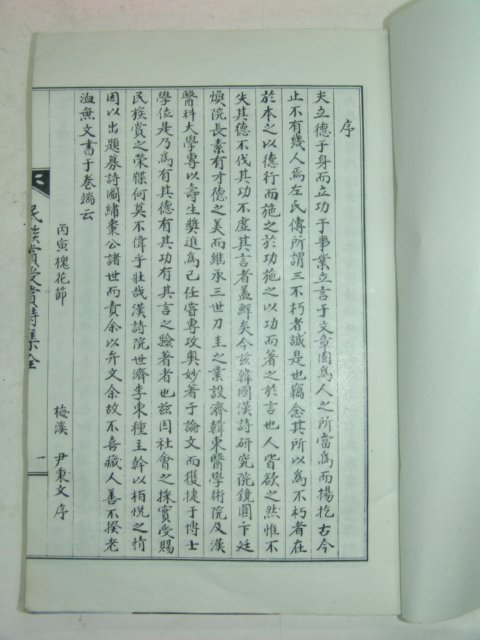 序
夫立德于身而立功于事業立言于文章固爲人之所當爲而揚扢古今
止不有幾人焉左氏傳所謂三不朽者誠是也竊念其所以爲不朽者在
於本之以德行而施之於功施之以功而著之於言也人皆欲之然惟不
失其德不伐其功不虛其言者盖鮮矣今玆韓國漢詩硏究院鏡圓卞廷
煥院長素有才德之美而継承三世刀圭之業設濟韓東醫學術院及漢
醫科大學專以壽生奬進爲己任嘗專攻奥妙著于論文而獲捷于博士
學位是乃爲有其德有其功有其言之驗著者也玆因社會之採實受賜
民族賞之榮牒何莫不偉乎壯哉漢詩院世濟李東種主幹以相悅之情
因以出題募詩圖繡棗公諸世而責余以弁文余故不喜藏人善不揆老
洫無文書于卷端云
丙寅槐花節
梅溪 尹秉文 序
民族賞受賞詩集全
一